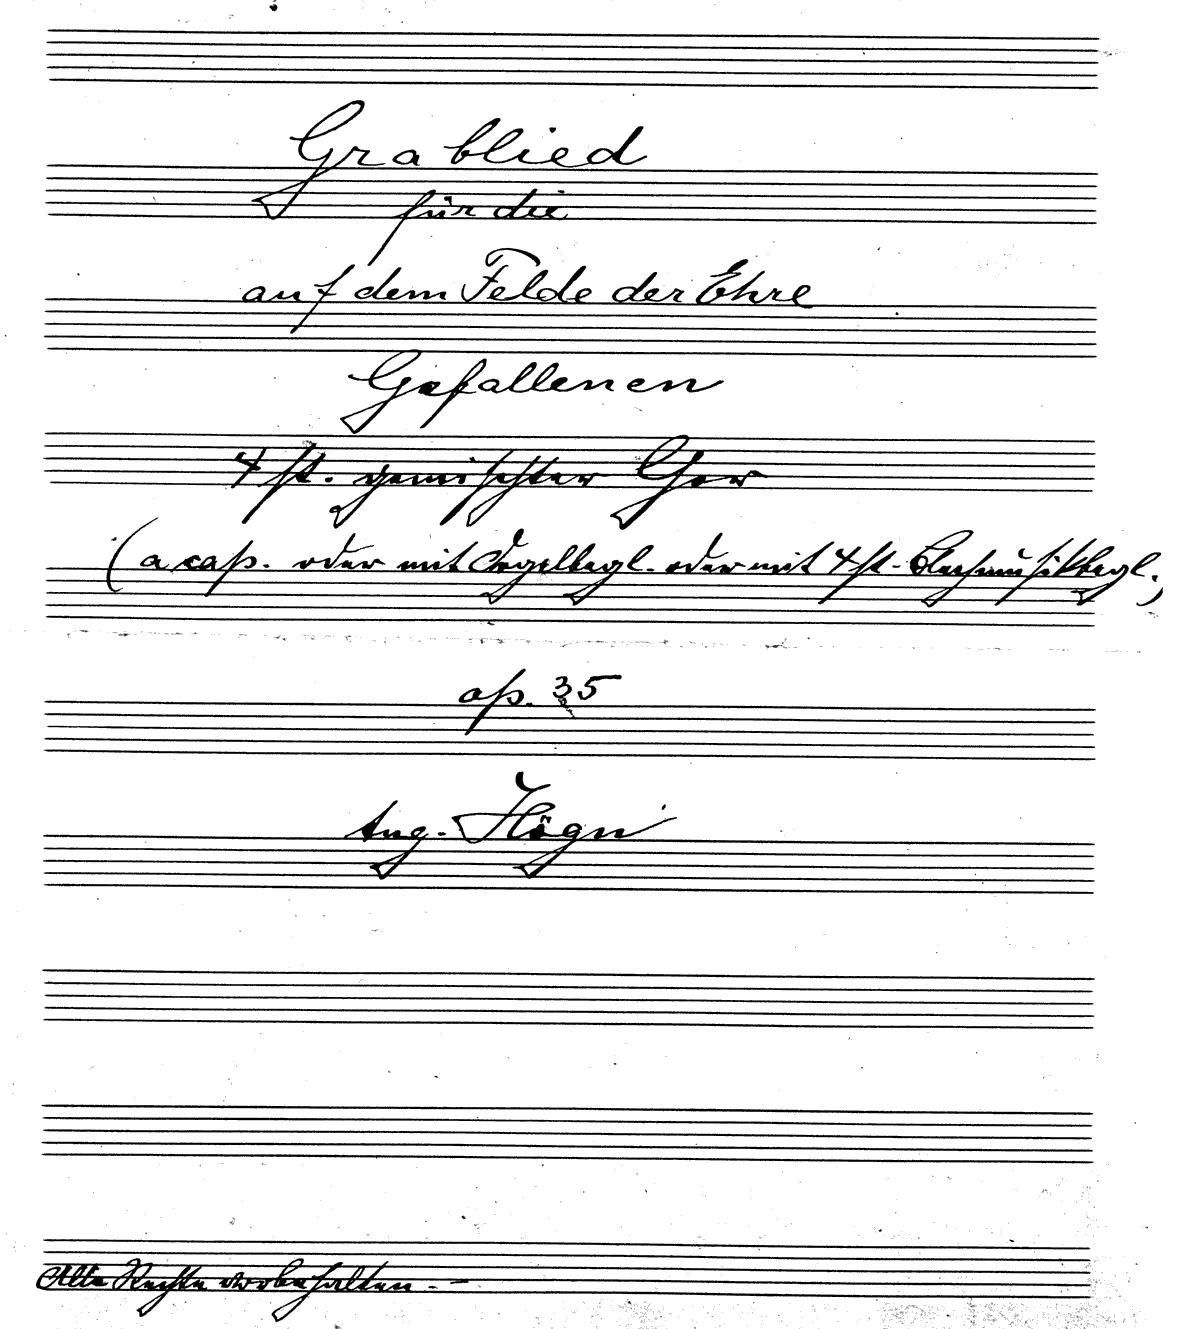 Grablied
für die
auf dem Felde der Ehre
Gefallenen
4 st. gemischter Chor
(a cap. oder mit Orgelbegl. oder mit 4 st. Blechmusikbegl.)
op. 35
Aug. Högn
Alle Rechte vorbehalten. –